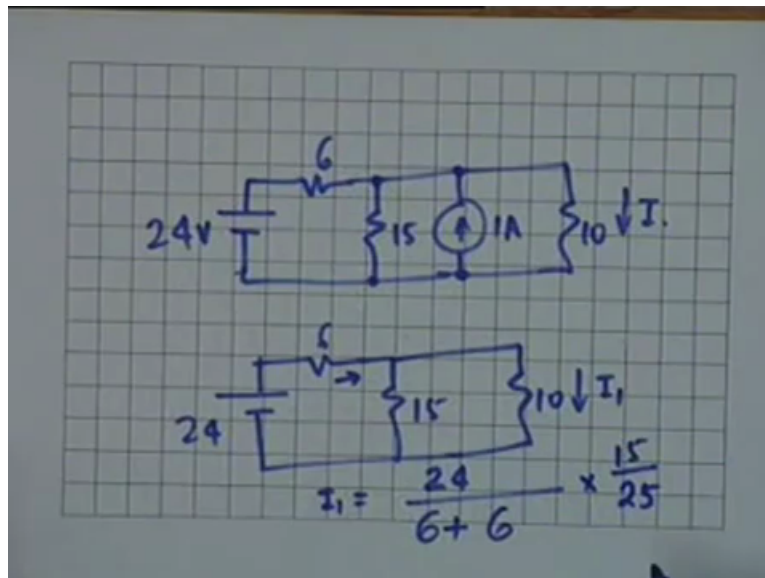 6
24V 15 1A 10 ↓ I.
6
→
24 15 10 ↓ I₁
I₁ = 24 / 6 + 6 × 15 / 25